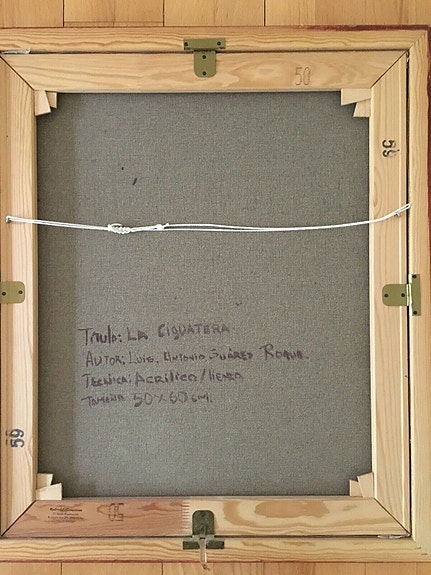 50
59
Titulo: LA CIGUATERA
AUTOR: LUIS. ANTONIO SUÁREZ ROQUE.
TECNICA: ACRILICO/LIENZO
TAMAÑO 50X60 cm.
59
50